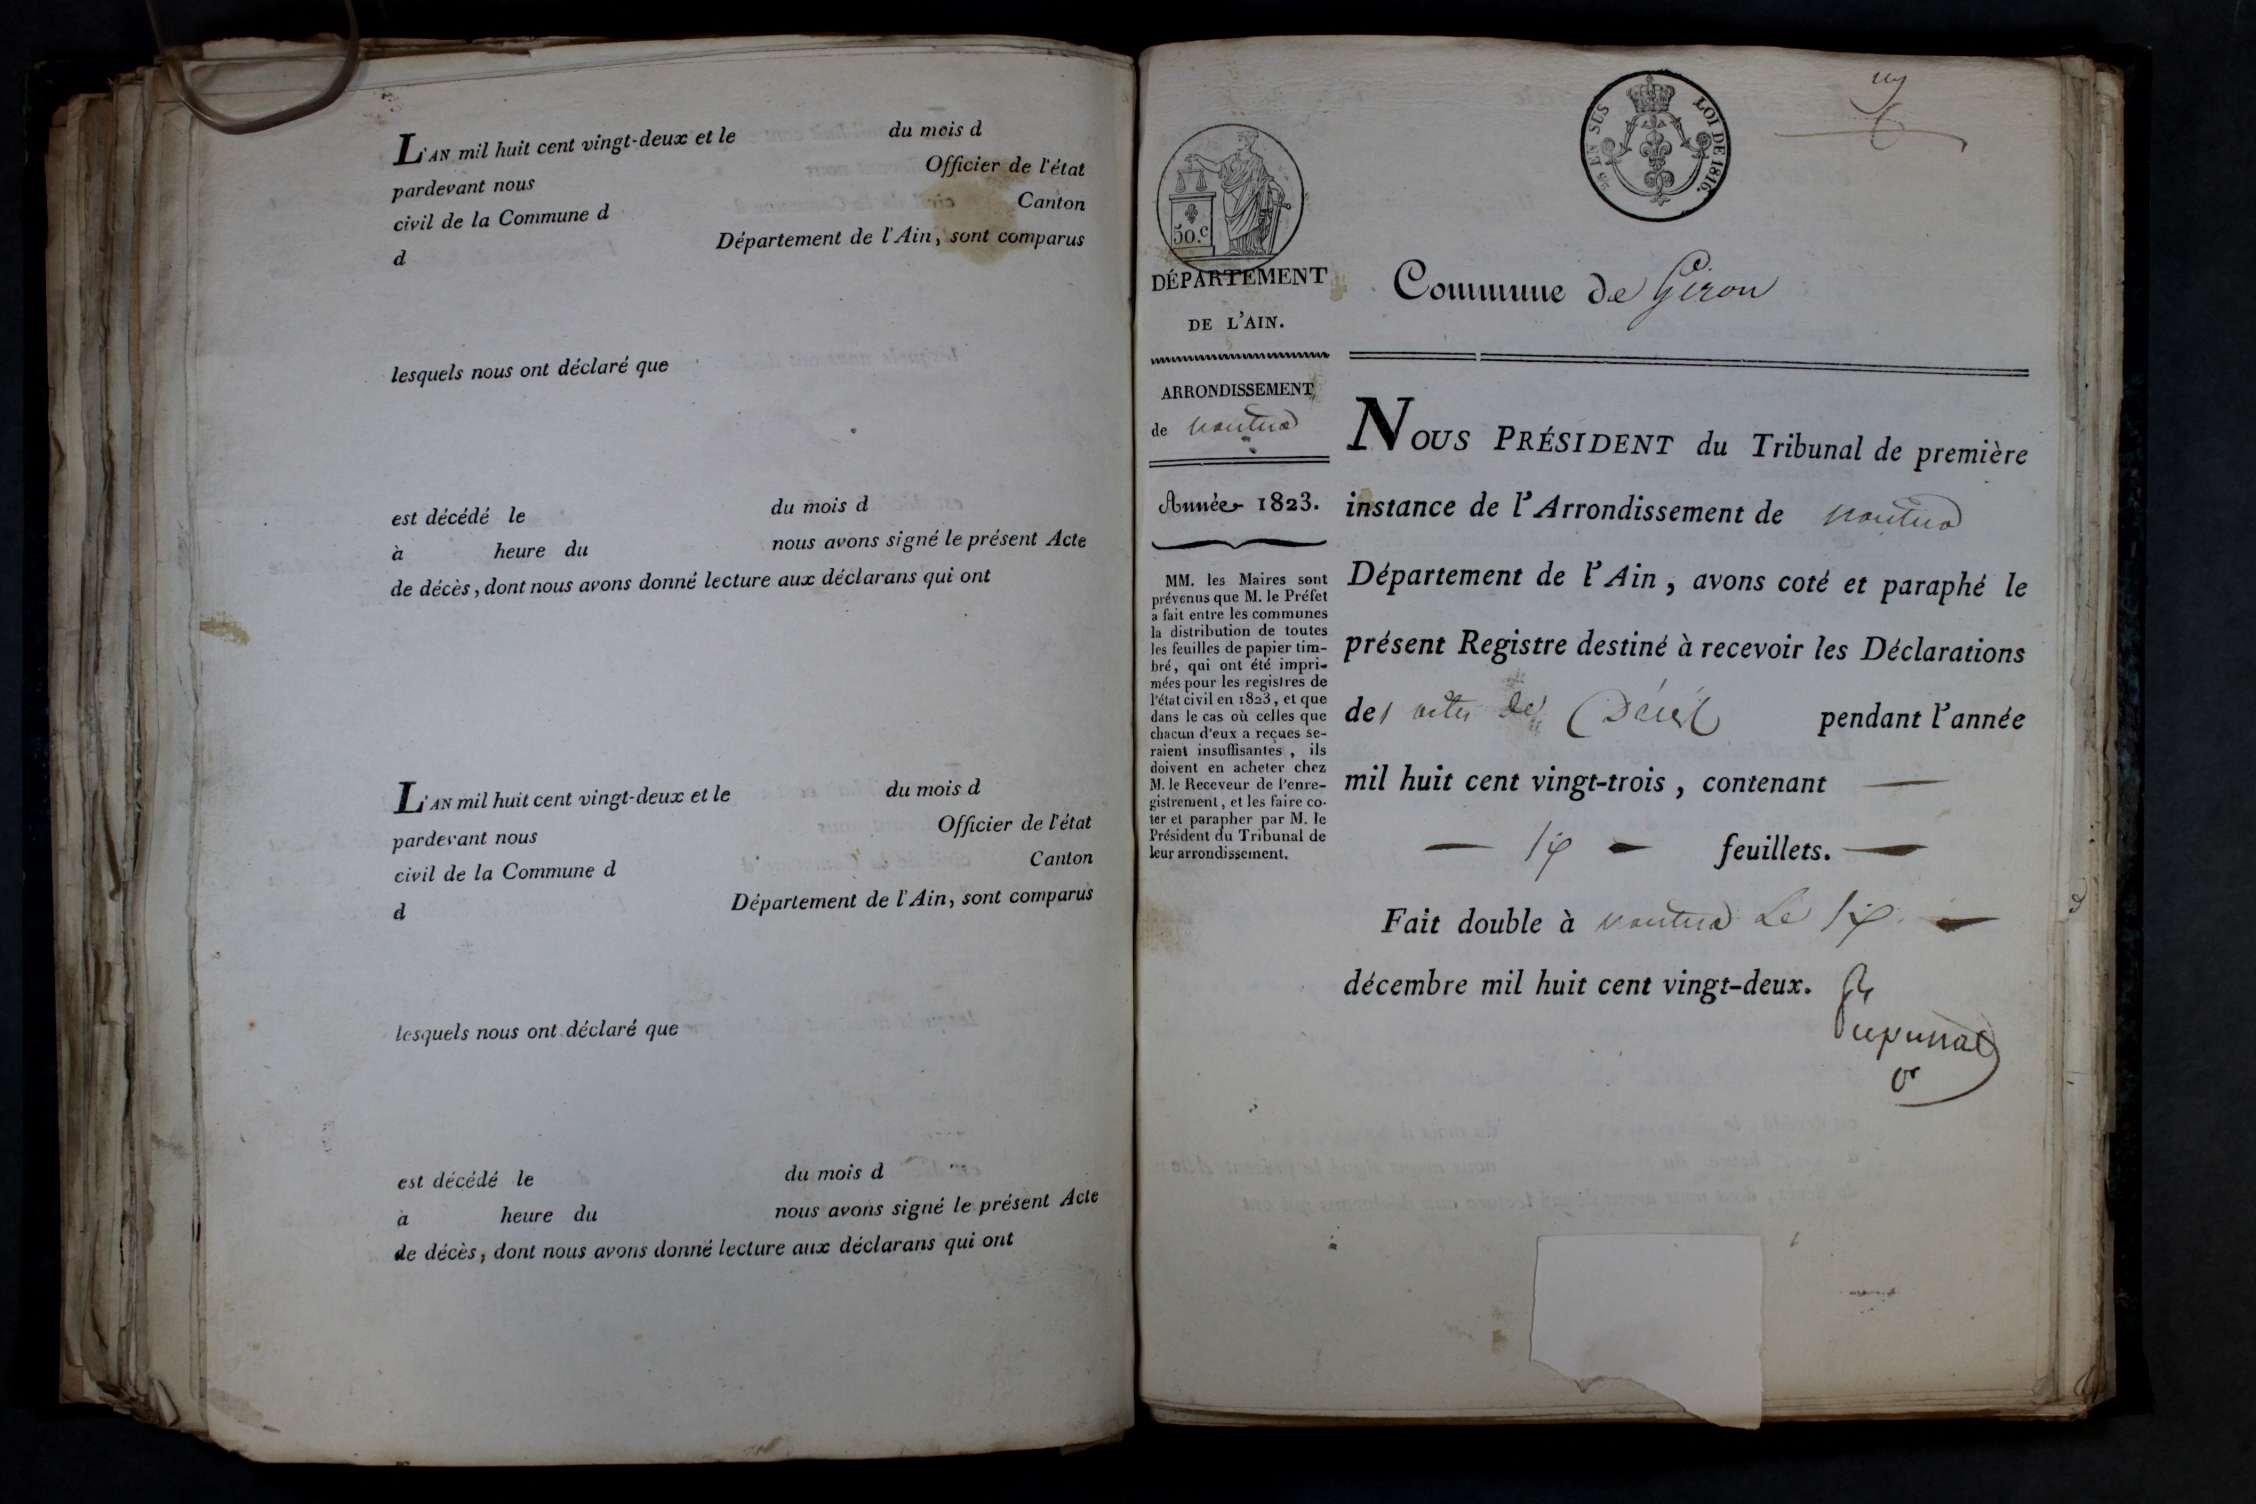 L'AN mil huit cent vingt-deux et le du mois d
pardevant nous Officier de l'état
civil de la Commune d Canton
d Département de l'Ain, sont comparus
lesquels nous ont déclaré que
est décédé le du mois d
à heure du nous avons signé le présent Acte
de décès, dont nous avons donné lecture aux déclarans qui ont
L'AN mil huit cent vingt-deux et le du mois d
pardevant nous Officier de l'état
civil de la Commune d Canton
d Département de l'Ain, sont comparus
lesquels nous ont déclaré que
est décédé le du mois d
à heure du nous avons signé le présent Acte
de décès, dont nous avons donné lecture aux déclarans qui ont
50.c
EN SUS LOI DE 1816.
DÉPARTEMENT
DE L'AIN.
ARRONDISSEMENT
de nantua
Année 1823.
MM. les Maires sont
prévenus que M. le Préfet
a fait entre les communes
la distribution de toutes
les feuilles de papier tim-
bré, qui ont été impri-
mées pour les registres de
l'état civil en 1823, et que
dans le cas où celles que
chacun d'eux a reçues se-
raient insuffisantes, ils
doivent en acheter chez
M. le Receveur de l'enre-
gistrement, et les faire co-
ter et parapher par M. le
Président du Tribunal de
leur arrondissement.
Commune de Giron
NOUS PRÉSIDENT du Tribunal de première
instance de l'Arrondissement de nantua
Département de l'Ain, avons coté et paraphé le
présent Registre destiné à recevoir les Déclarations
des actes de Décès pendant l'année
mil huit cent vingt-trois, contenant
six feuillets.
Fait double à nantua Le six
décembre mil huit cent vingt-deux.